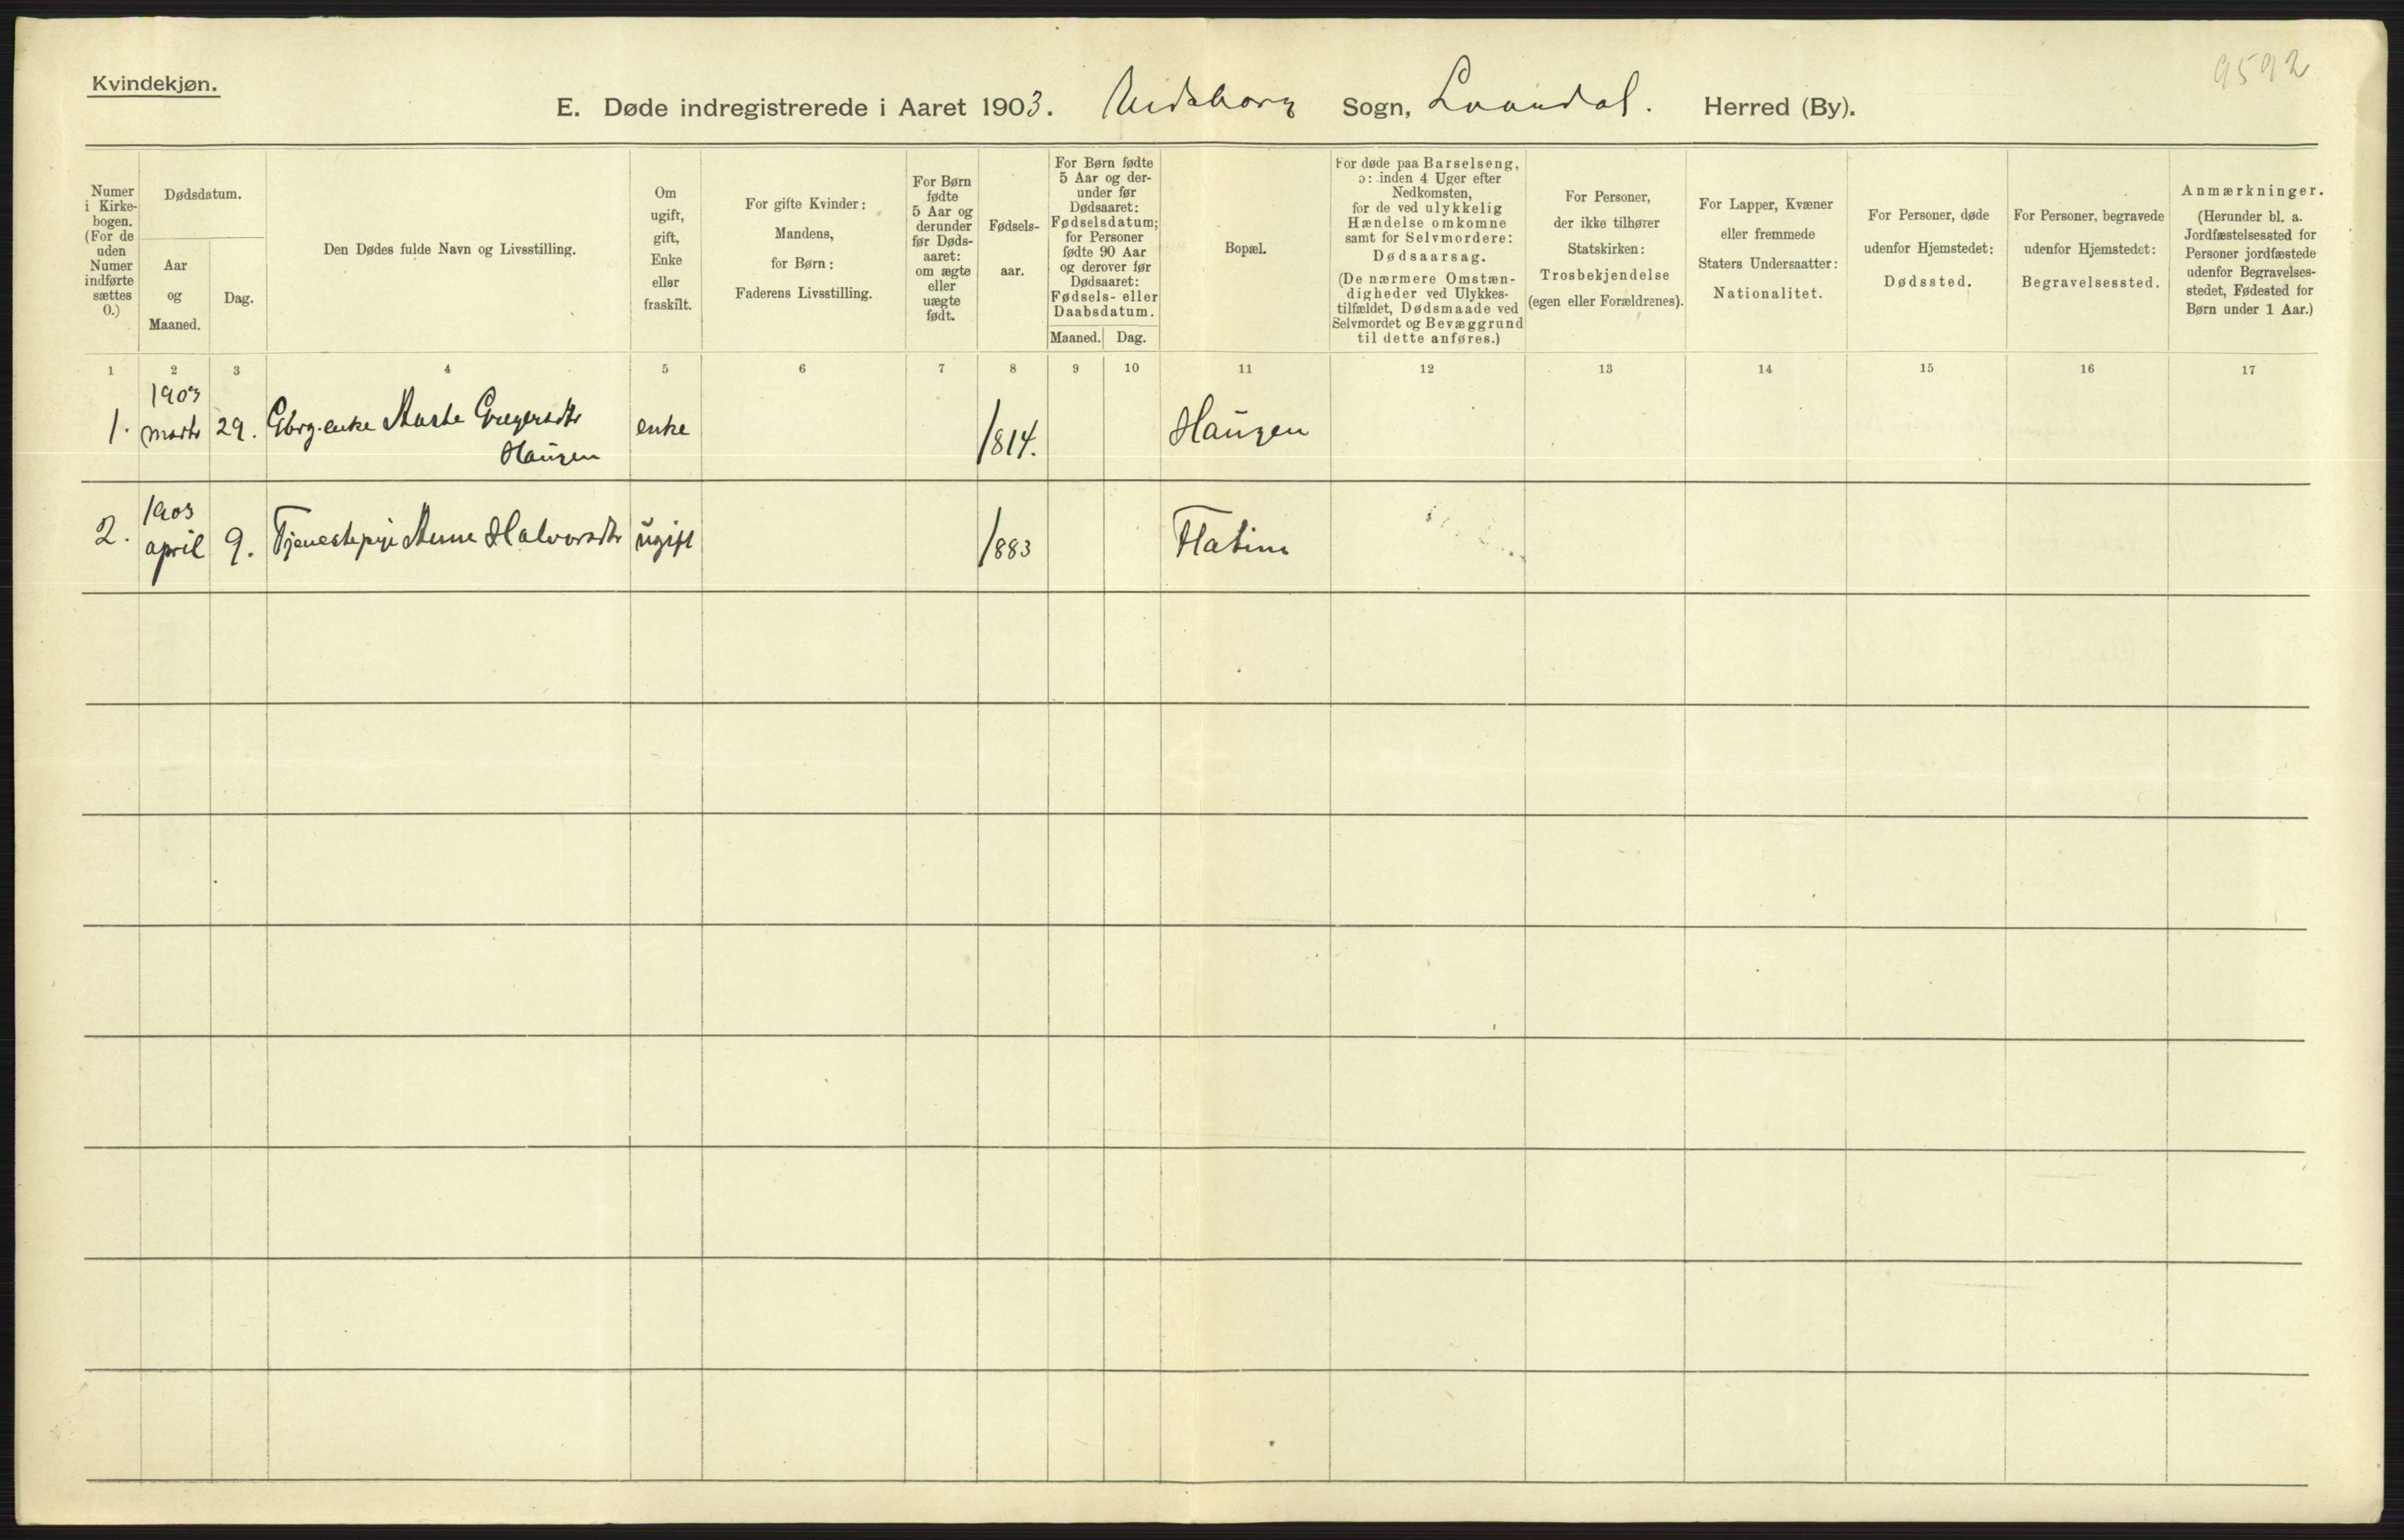 Kvindekjøn.
9592
E. Døde indregistrerede i Aaret 1903. Eidsborg Sogn, Laurdal. Herred (By).
Numer
i Kirke-
bogen.
(For de
uden
Numer
indførte
sættes
0.)
Dødsdatum.
Aar
og
Maaned.
Dag.
Den Dødes fulde Navn og Livsstilling.
Om
ugift,
gift,
Enke
eller
fraskilt.
For gifte Kvinder:
Mandens,
for Børn:
Faderens Livsstilling.
For Børn
fødte
5 Aar og
derunder
før Døds-
aaret:
om ægte
eller
uægte
født.
Fødsels-
aar.
For Børn fødte
5 Aar og der-
under før
Dødsaaret:
Fødselsdatum;
for Personer
fødte 90 Aar
og derover før
Dødsaaret:
Fødsels- eller
Daabsdatum.
Maaned. Dag.
Bopæl.
For døde paa Barselseng,
ɔ: inden 4 Uger efter
Nedkomsten,
for de ved ulykkelig
Hændelse omkomne
samt for Selvmordere:
Dødsaarsag.
(De nærmere Omstæn-
digheder ved Ulykkes-
tilfældet, Dødsmaade ved
Selvmordet og Bevæggrund
til dette anføres.)
For Personer,
der ikke tilhører
Statskirken:
Trosbekjendelse
(egen eller Forældrenes).
For Lapper, Kvæner
eller fremmede
Staters Undersaatter:
Nationalitet.
For Personer, døde
udenfor Hjemstedet:
Dødssted.
For Personer, begravede
udenfor Hjemstedet:
Begravelsessted.
Anmærkninger.
(Herunder bl. a.
Jordfæstelsessted for
Personer jordfæstede
udenfor Begravelses-
stedet, Fødested for
Børn under 1 Aar.)
1 2 3 4 5 6 7 8 9 10 11 12 13 14 15 16 17
1903
1. marts 29. Gbrg.enke Aaste Gregersdtr enke 1814. Haugen
Haugen
1903
2. april 9. Tjenestepige Anne Halvorsdtr ugift 1883 Flatin